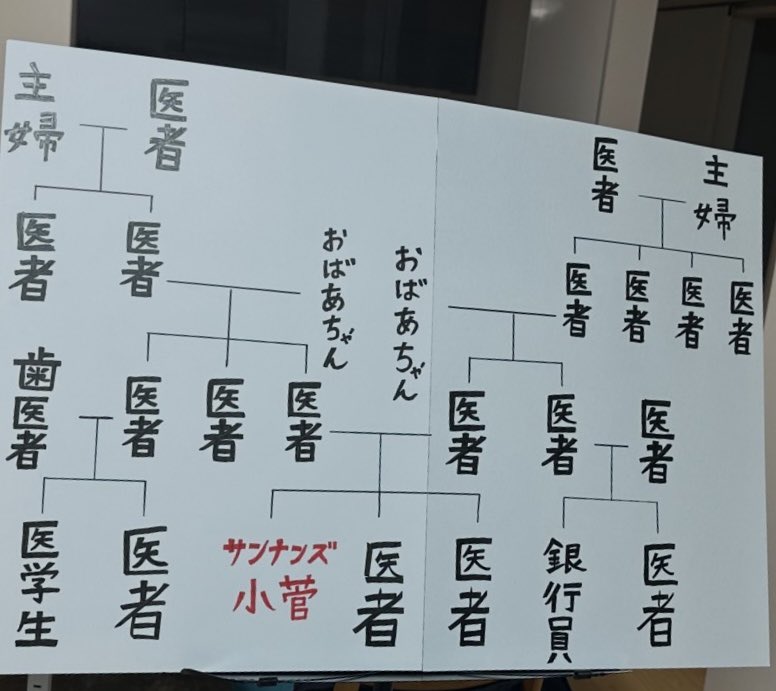 主婦
医者
医者
主婦
医者
医者
おばあちゃん
おばあちゃん
医者
医者
医者
医者
歯医者
医者
医者
医者
医者
医者
医者
医学生
医者
サンナンズ
小菅
医者
医者
銀行員
医者